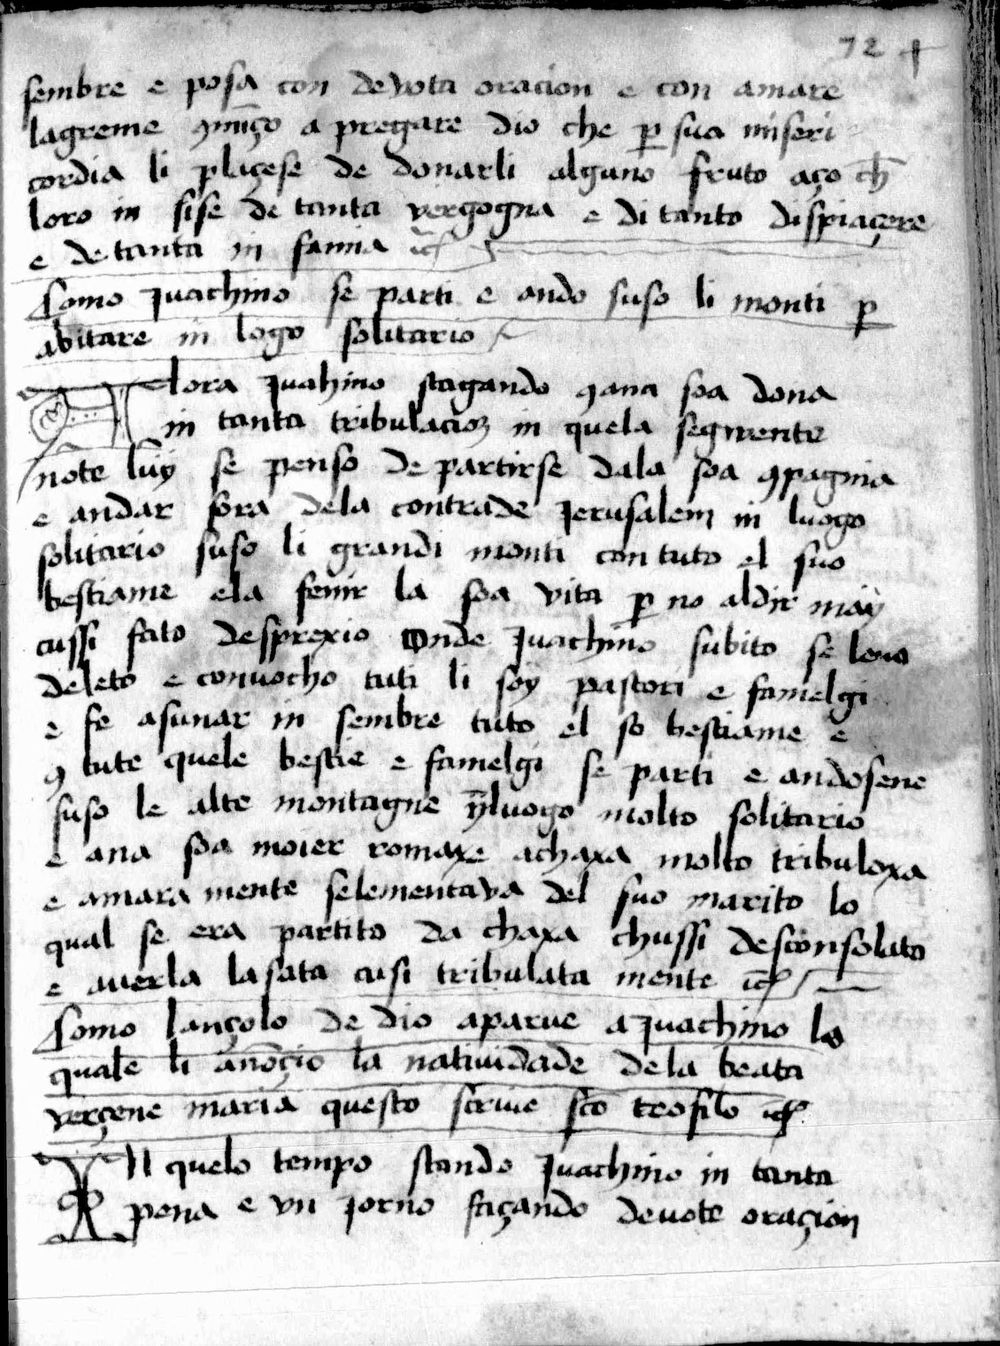 72 +
sembre e posa con devota oracion e con amare
lagreme 9mȳço a pregare dio che ꝑ sua miseri
cordia li plaçese de donarli alguno fruto aço ch̄
loro in sise de tanta vergogna e di tanto dispiaçere
e de tanta in famia
Como Juachino se parti e ando suso li monti ꝑ
abitare in logo solitario
Alora Juahino stagando 9 ana soa dona
in tanta tribulacioȝ in quela seguente
note luy se penso de partirse dala soa 9pagnia
e andar fora dela contrade Jerusalem in luogo
solitario suso li grandi monti con tuto el suo
bestiame e la fenir la soa vita ꝑ no aldir may
cussi fato desprexio Onde Juachino subito se levo
deleto e convocho tuti li soy pastori e famelgi
e fe asunar in sembre tuto el so bestiame e
9 tute quele bestie e famelgi se parti e andosene
suso le alte montagne luogo molto solitario
e ana soa moier romaxe a chaxa molto tribuloxa
e amara mente se lementava del suo marito lo
qual se era partito da chaxa chussi desconsolato
e averla lasata cusi tribulata mente
Como lançolo de dio aparve a Juachino lo
quale li anōçio la natividade de la beata
verçene maria questo scrive sc̄o teofilo
IN quelo tempo stando Juachino in tanta
pena e un jorno façando devote oraçion